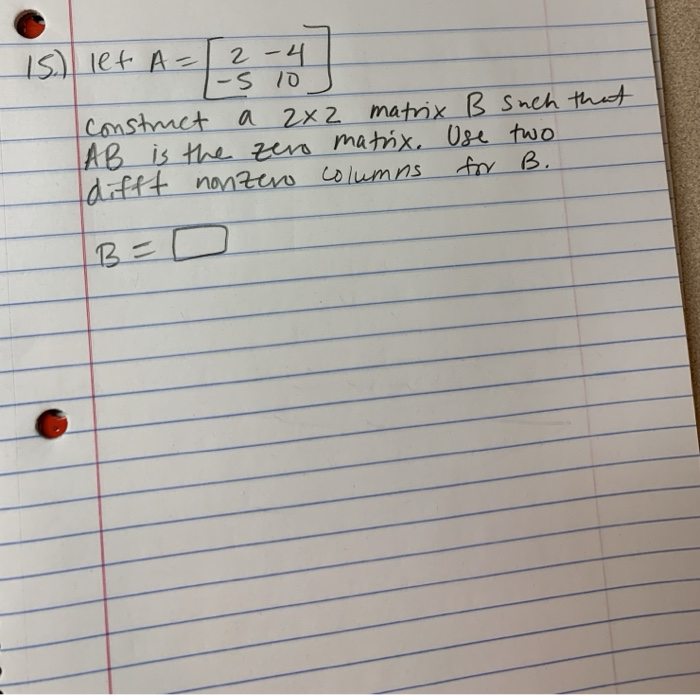 15.) let A = [2 -4
-5 10]
construct a 2x2 matrix B such that
AB is the zero matrix. Use two
difft nonzero columns for B.
B = □